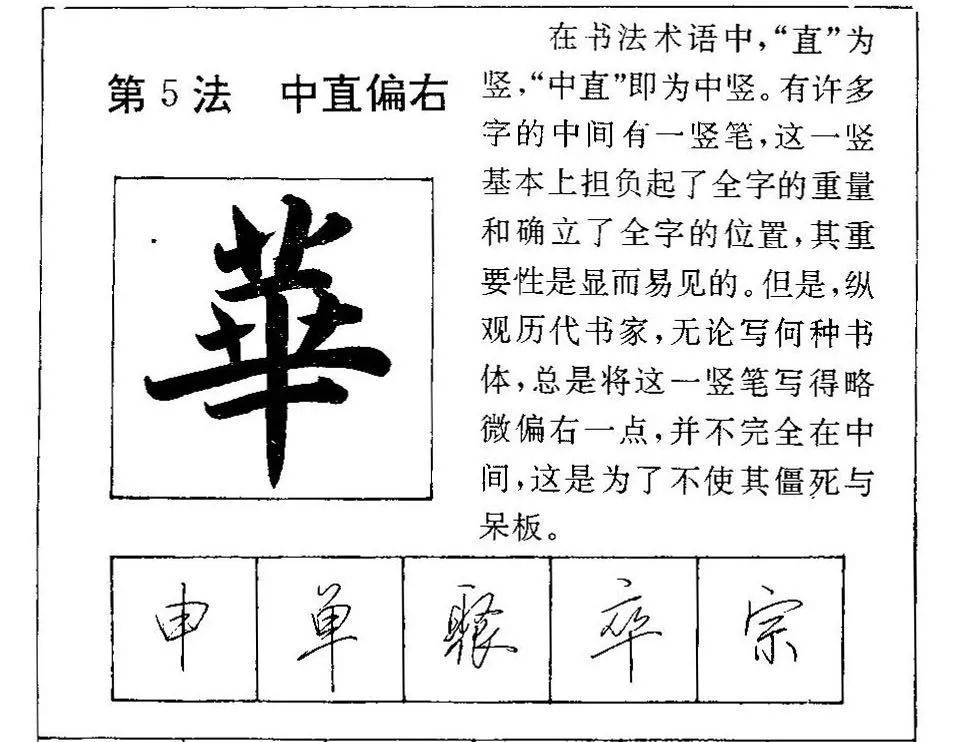 第5法 中直偏右
華
在书法术语中，“直”为
竖，“中直”即为中竖。有许多
字的中间有一竖笔，这一竖
基本上担负起了全字的重量
和确立了全字的位置，其重
要性是显而易见的。但是，纵
观历代书家，无论写何种书
体，总是将这一竖笔写得略
微偏右一点，并不完全在中
间，这是为了不使其僵死与
呆板。
申 单 聚 卒 宗